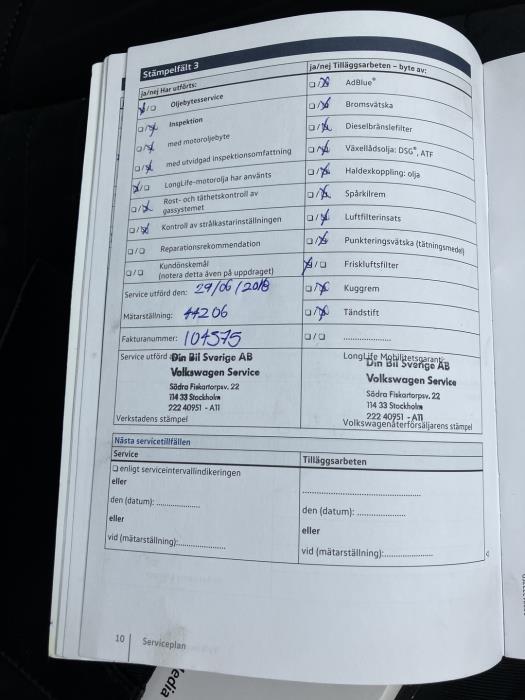 Stämpelfält 3
ja/nej Har utförts:
Oljebytesservice
Inspektion
med motoroljebyte
med utvidgad inspektionsomfattning
LongLife-motorolja har använts
Rost- och täthetskontroll av
gassystemet
Kontroll av strålkastarinställningen
Reparationsrekommendation
Kundönskemål
(notera detta även på uppdraget)
Service utförd den: 29/06/2018
Mätarställning: 44206
Fakturanummer: 104575
Service utförd
Din Bil Sverige AB
Volkswagen Service
Södra Fiskartorpsv. 22
114 33 Stockholm
222 40951 - A11
Verkstadens stämpel
ja/nej Tilläggsarbeten – byte av:
AdBlue®
Bromsvätska
Dieselbränslefilter
Växellådsolja: DSG®, ATF
Haldexkoppling: olja
Spårkilrem
Luftfilterinsats
Punkteringsvätska (tätningsmedel)
Friskluftsfilter
Kuggrem
Tändstift
LongLife Mobilitetsgaranti
Din Bil Sverige AB
Volkswagen Service
Södra Fiskartorpsv. 22
114 33 Stockholm
222 40951 - A11
Volkswagenåterförsäljarens stämpel
Nästa servicetillfällen
Service
enligt serviceintervallindikeringen
eller
den (datum):
eller
vid (mätarställning):
Tilläggsarbeten
den (datum):
eller
vid (mätarställning):
10 Serviceplan
edia